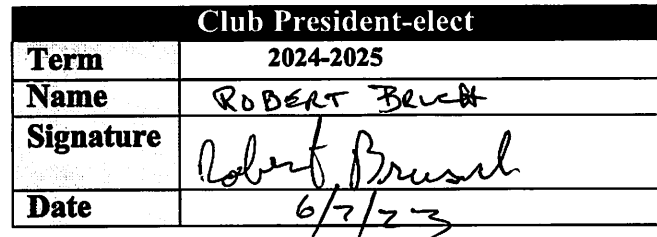 Club President-elect
Term 2024-2025
Name ROBERT
Signature Robert
Date 6/7/23